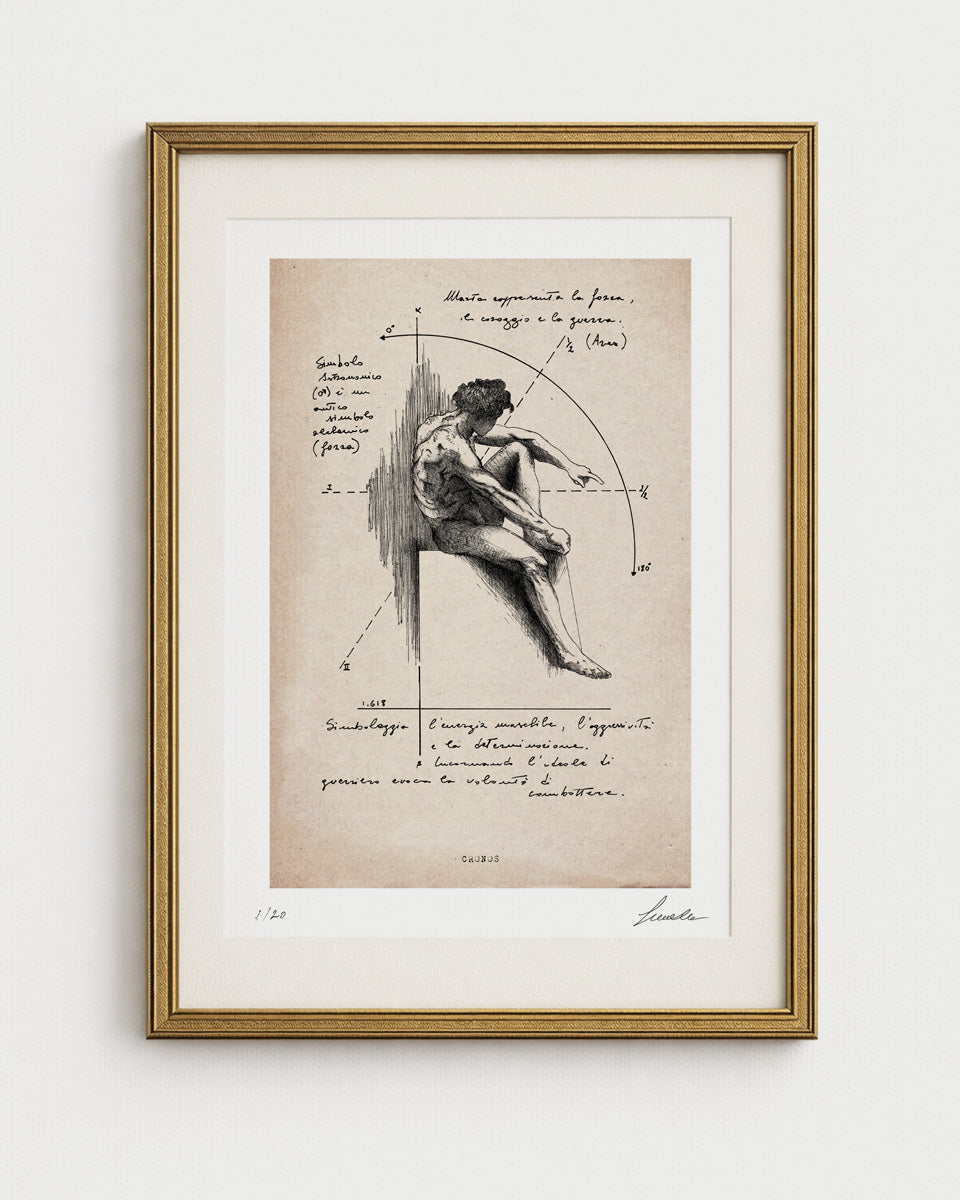 Marte rappresenta la forza,
il coraggio e la guerra.
(Ares)
α
0°
1/2
Simbolo
Astronomico
(♂) è un
antico
simbolo
alchemico
(forza)
I
1/2
180°
II
1.618
Simboleggia l'energia maschile, l'aggressività
e la determinazione.
Incarnando l'ideale di
guerriero evoca la volontà di
combattere.
CRONOS
1/20